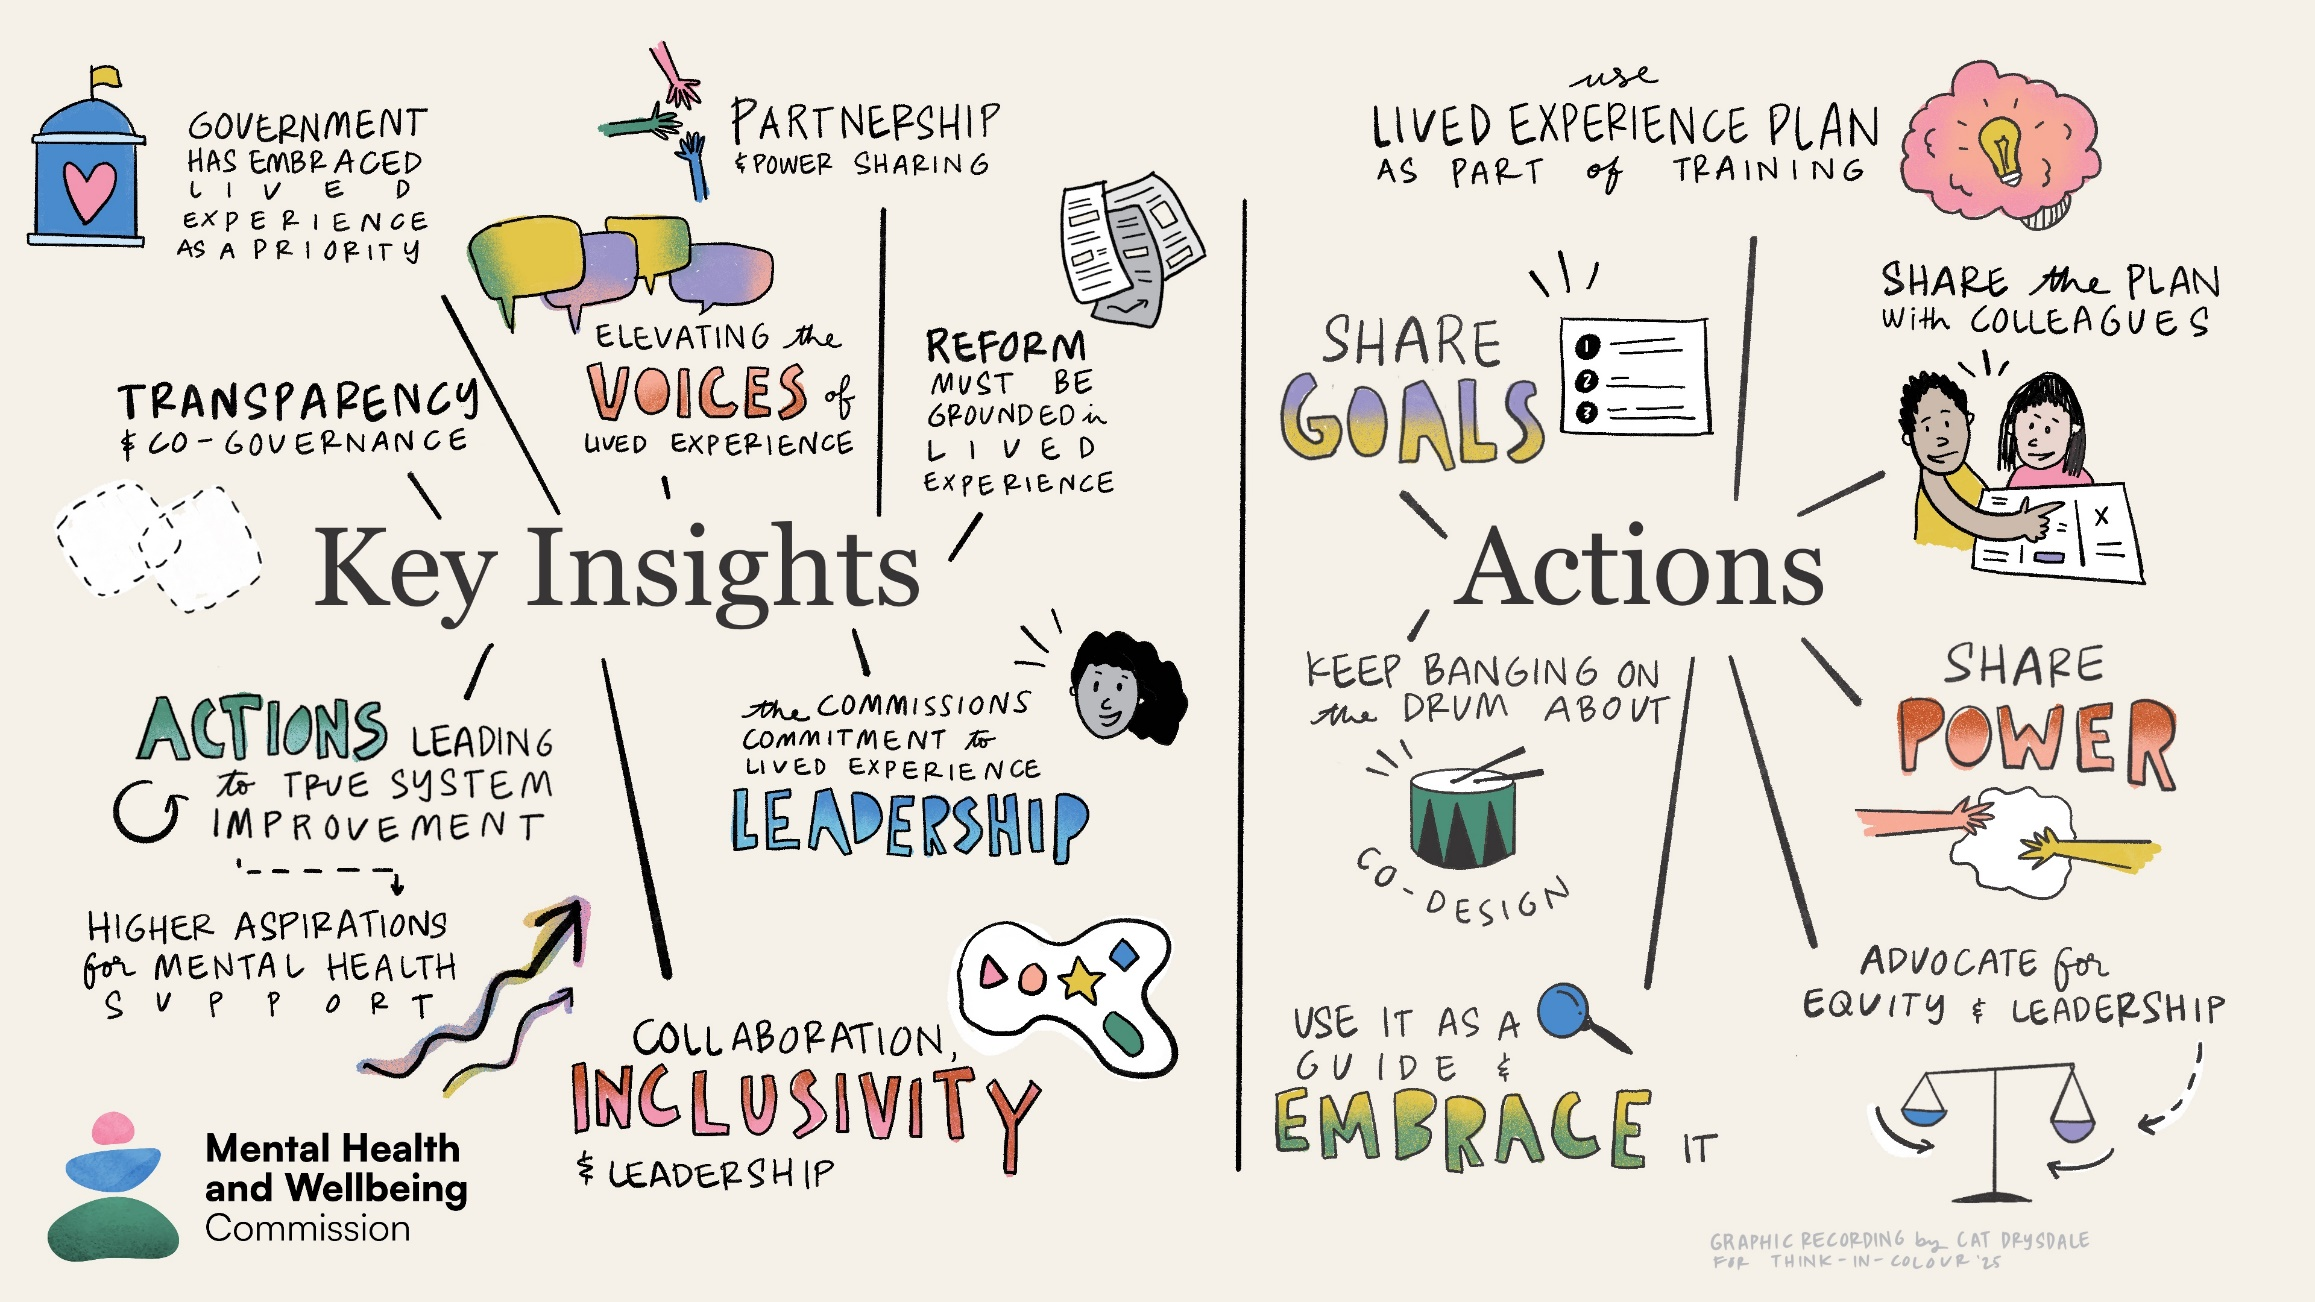 GOVERNMENT
HAS EMBRACED
LIVED
EXPERIENCE
AS A PRIORITY
PARTNERSHIP
& POWER SHARING
TRANSPARENCY
& CO-GOVERNANCE
ELEVATING the
VOICES of
LIVED EXPERIENCE
REFORM
MUST BE
GROUNDED in
LIVED
EXPERIENCE
Key Insights
ACTIONS LEADING
to TRUE SYSTEM
IMPROVEMENT
HIGHER ASPIRATIONS
for MENTAL HEALTH
SUPPORT
the COMMISSIONS
COMMITMENT to
LIVED EXPERIENCE
LEADERSHIP
COLLABORATION,
INCLUSIVITY
& LEADERSHIP
Mental Health
and Wellbeing
Commission
use
LIVED EXPERIENCE PLAN
AS PART of TRAINING
SHARE
GOALS
1
2
3
SHARE the PLAN
with COLLEAGUES
X
Actions
KEEP BANGING ON
the DRUM ABOUT
CO-DESIGN
SHARE
POWER
USE IT AS A
GUIDE &
EMBRACE IT
ADVOCATE for
EQUITY & LEADERSHIP
GRAPHIC RECORDING by CAT DRYSDALE
FOR THINK-IN-COLOUR '25